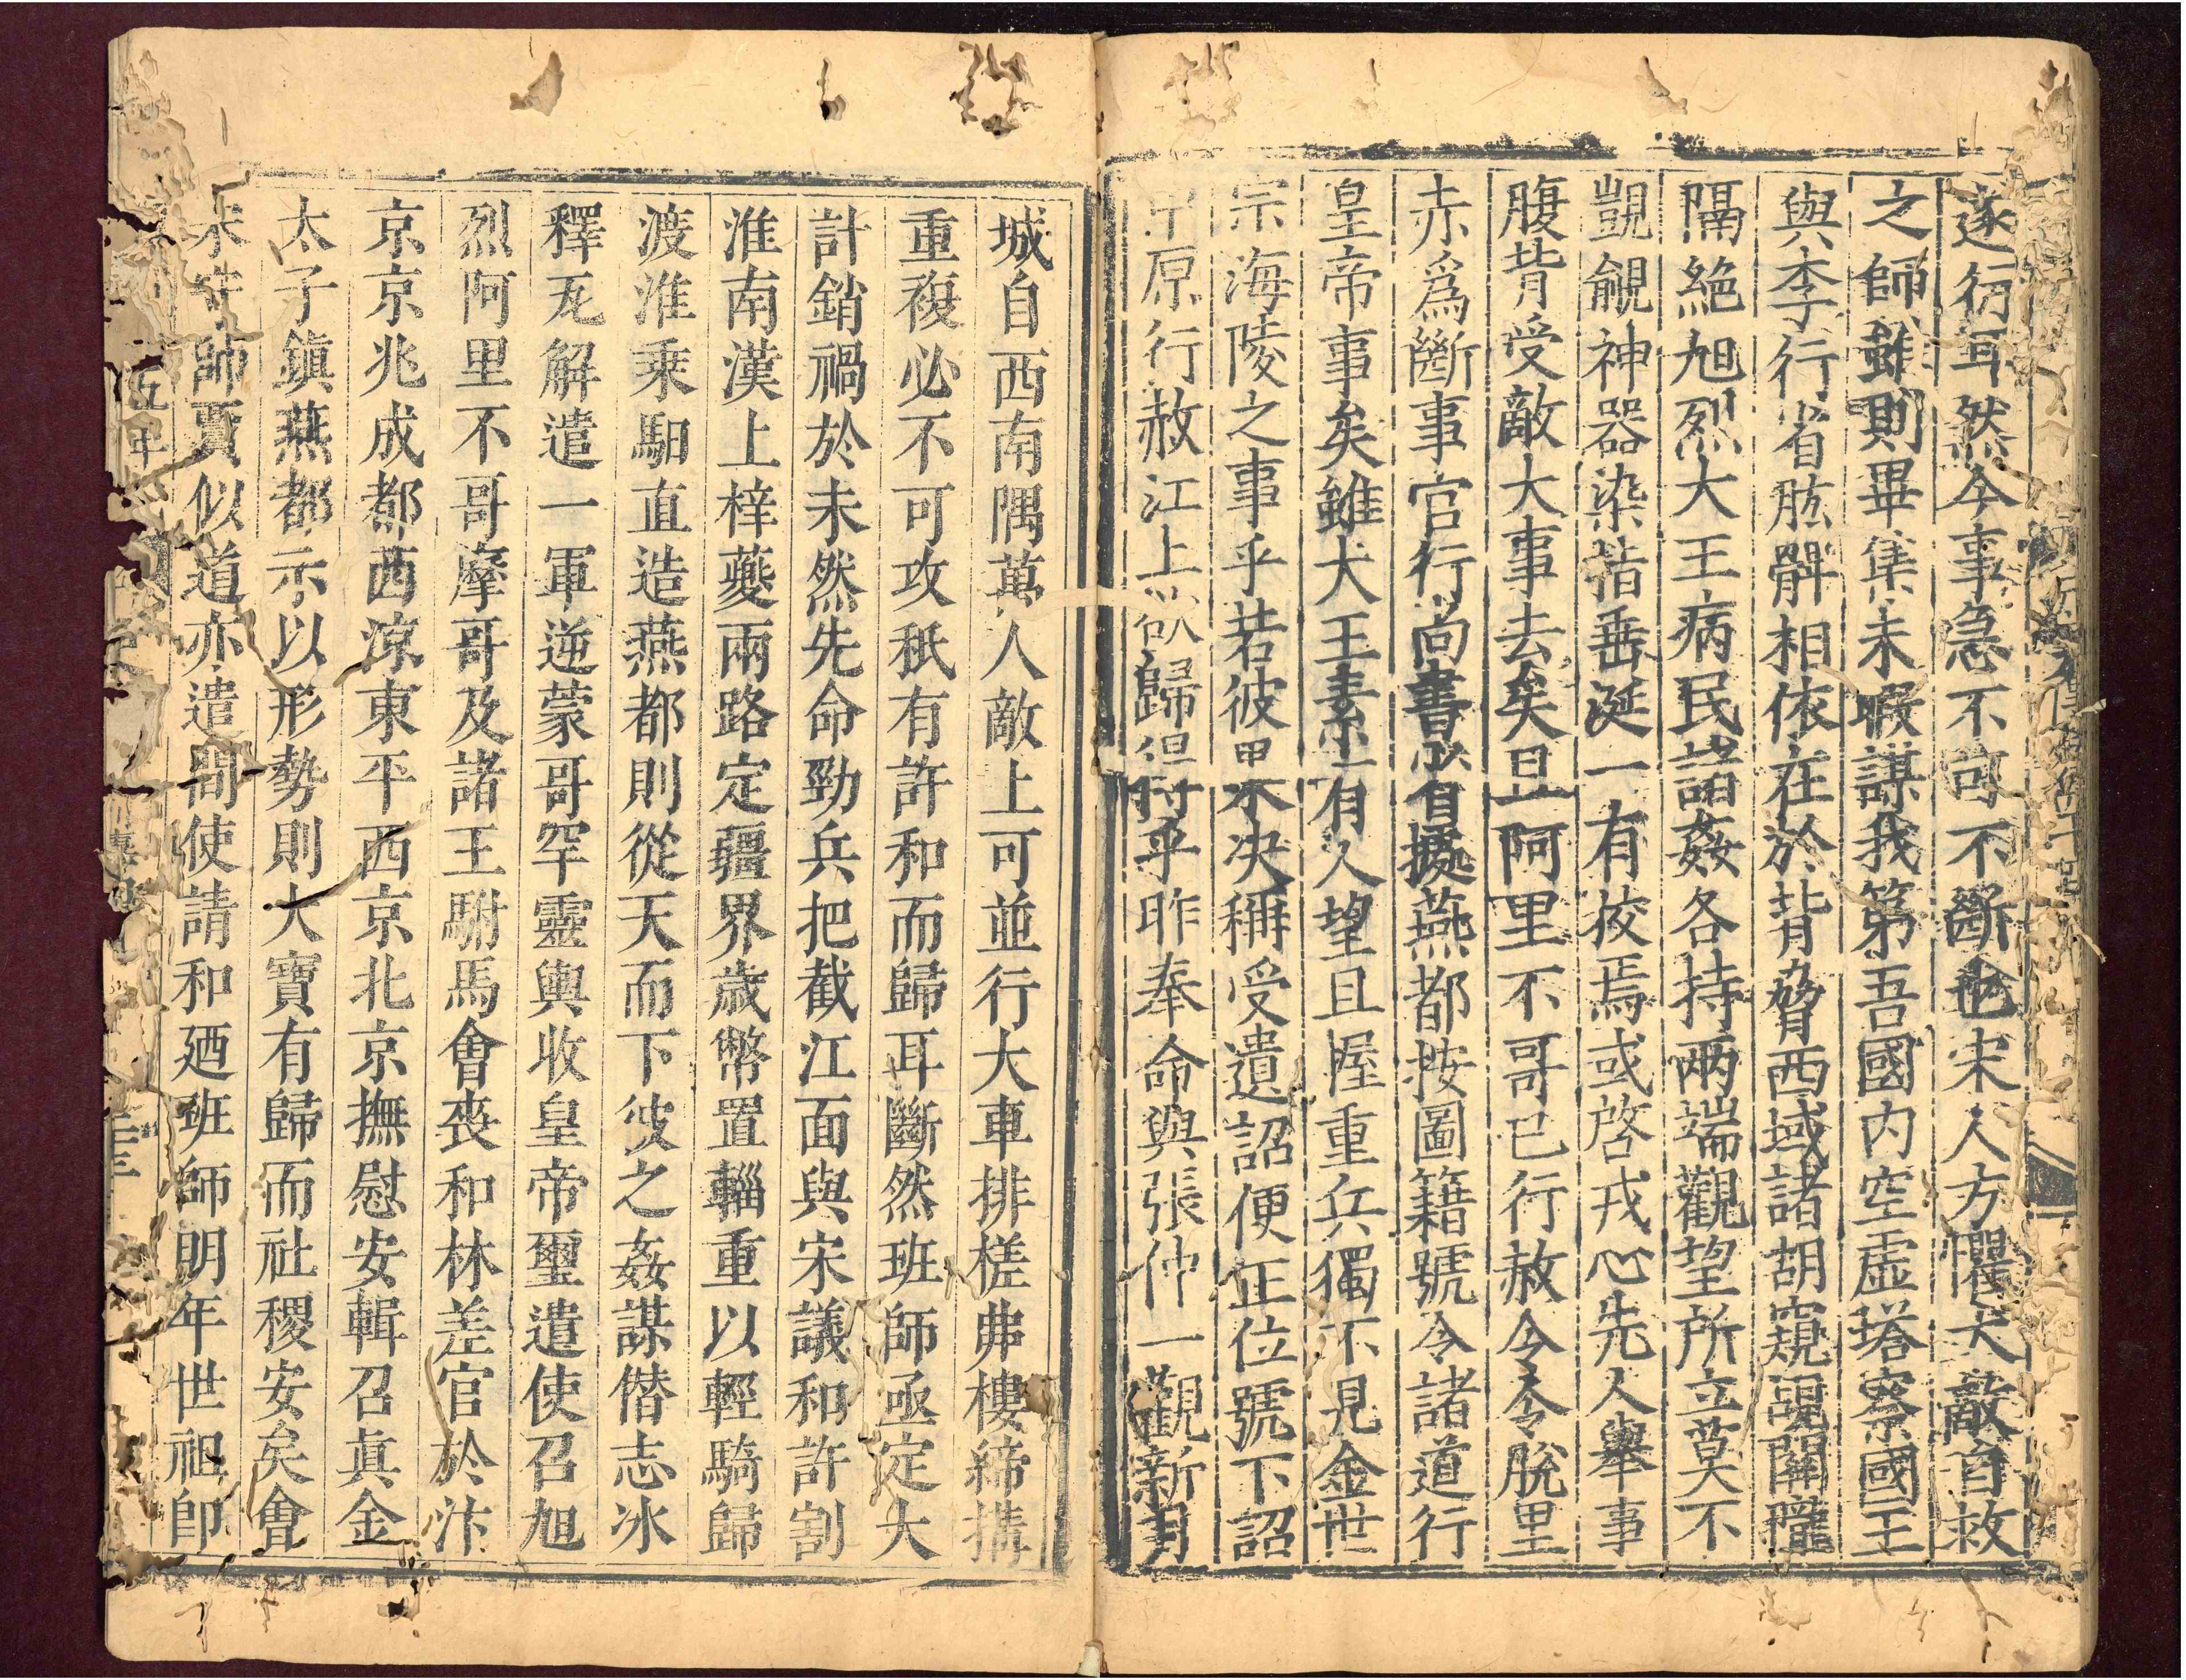 遂行耳然今事急不可不斷也宋人方懼大敵自救
之師雖則畢集未暇謀我第吾國内空虛塔察國王
與李行省肱髀相依在於背脅西域諸胡窺覘關隴
隔絶旭烈大王病民諸姦各持兩端觀望所立莫不
覬覦神器染指垂涎一有狡焉或啓戎心先人舉事
腹背受敵大事去矣且阿里不哥已行赦令令脫里
赤爲斷事官行尚書省據燕都按圖籍號令諸道行
皇帝事矣雖大王素有人望且握重兵獨不見金世
宗海陵之事乎若彼果决稱受遺詔便正位號下詔
中原行赦江上欲歸得乎昨奉命與張仲一觀新月
城自西南隅萬人敵上可並行大車排槎弗樓締搆
重複必不可攻秖有許和而歸耳斷然班師亟定大
計銷禍於未然先命勁兵把截江面與宋議和許割
淮南漢上梓夔兩路定疆界歲幣置輜重以輕騎歸
渡淮乘馹直造燕都則從天而下彼之姦謀僭志冰
釋瓦解遣一軍逆蒙哥罕靈輿收皇帝璽遣使召旭
烈阿里不哥摩哥及諸王駙馬會喪和林差官於汴
京京兆成都西凉東平西京北京撫慰安輯召眞金
太子鎮燕都示以形勢則大寶有歸而社稷安矣會
宋守帥賈似道亦遣間使請和廼班師明年世祖卽